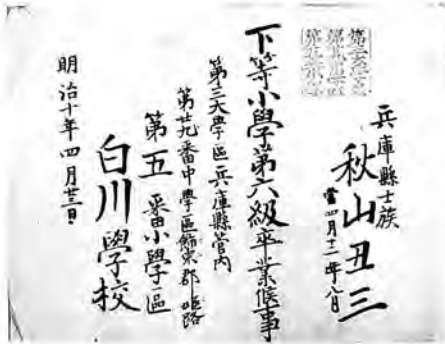 兵庫縣士族
秋山丑三
當四月十二年八月
下等小學第六級卒業候事
第三大學區兵庫縣管内
第廿九番中學區飾東郡姫路
第五番小學區
白川學校
明治十年四月廿三日